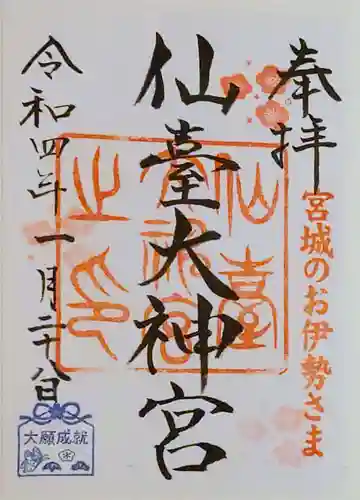 奉拝
宮城のお伊勢さま
仙臺大神宮
仙臺
大神宮
之印
令和四年一月二十八日
大願成就